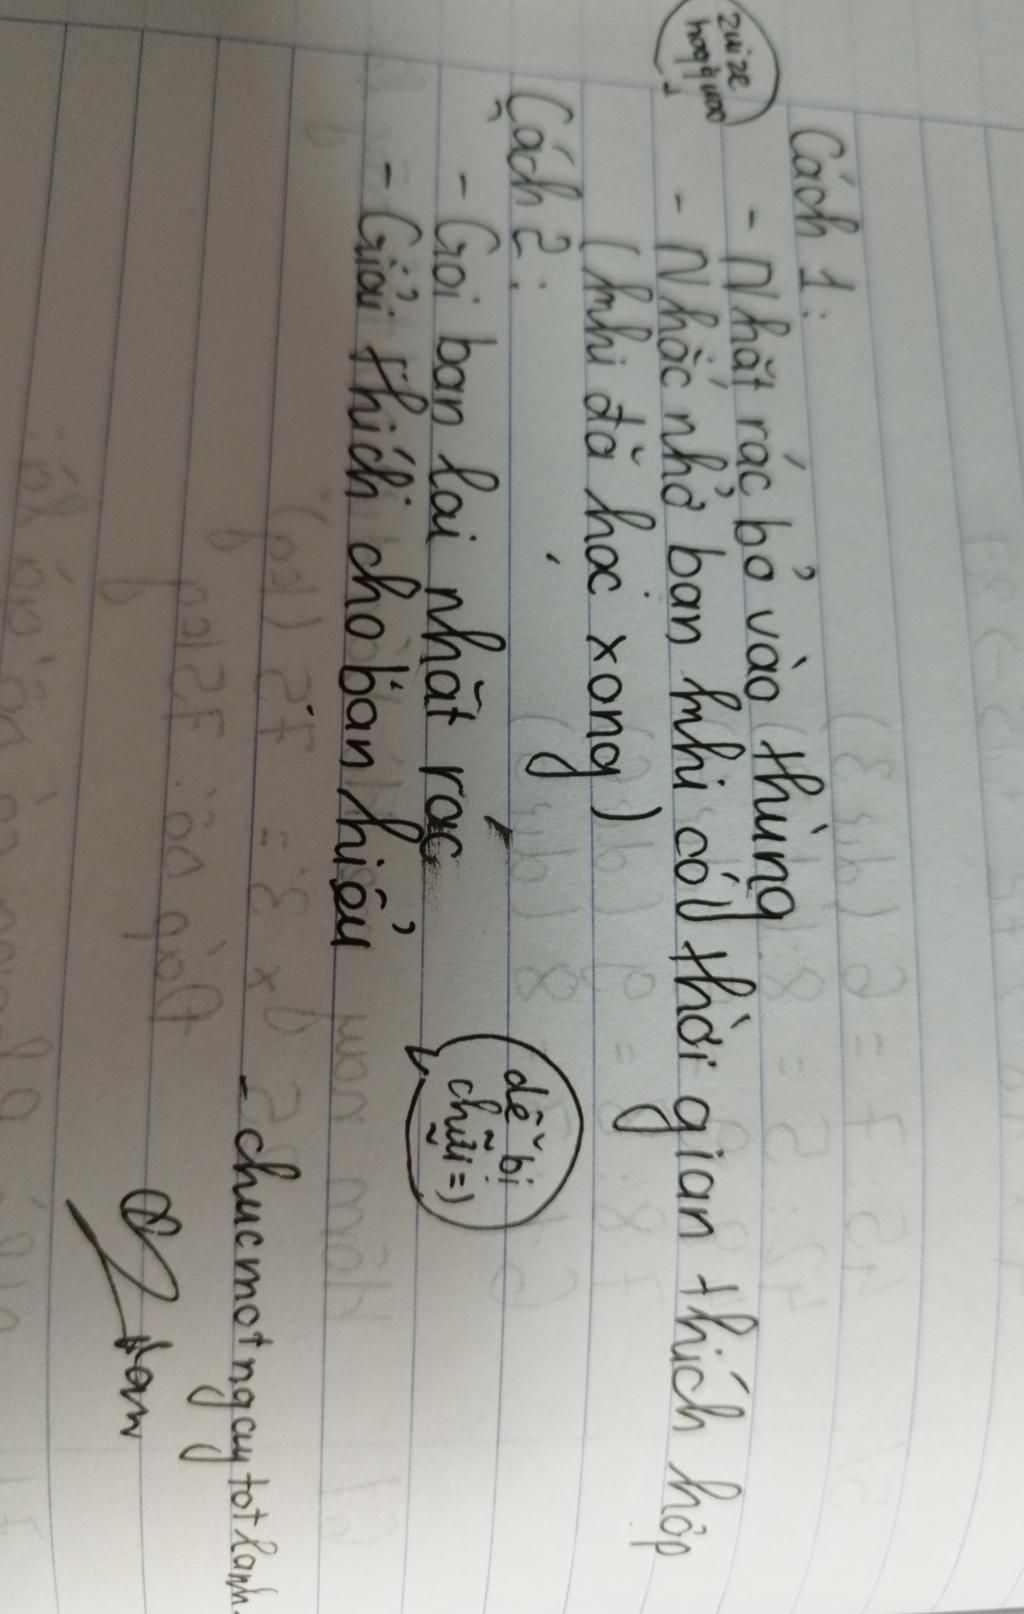 Cách 1:
- Nhặt rác bỏ vào thùng
- Nhắc nhở bạn khi có thời gian thích hợp
(khi đã học xong)
Cách 2:
- Gọi bạn lại nhặt rác
- Giải thích cho bạn hiểu
dễ bị
chửi =)
zui ze
- chuc mot ngay tot lanh.